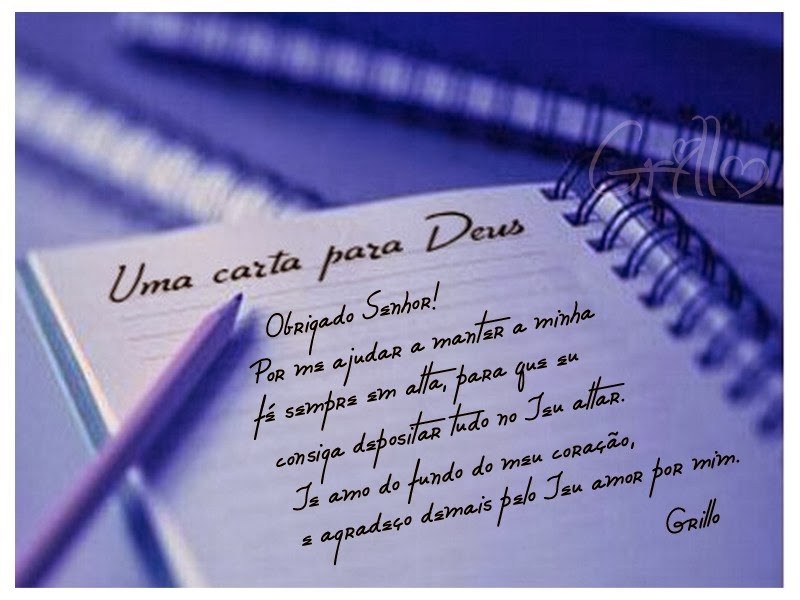 Grillo
Uma carta para Deus
Obrigado Senhor!
Por me ajudar a manter a minha
fé sempre em alta, para que eu
consiga depositar tudo no Teu altar.
Te amo do fundo do meu coração,
e agradeço demais pelo Teu amor por mim.
Grillo